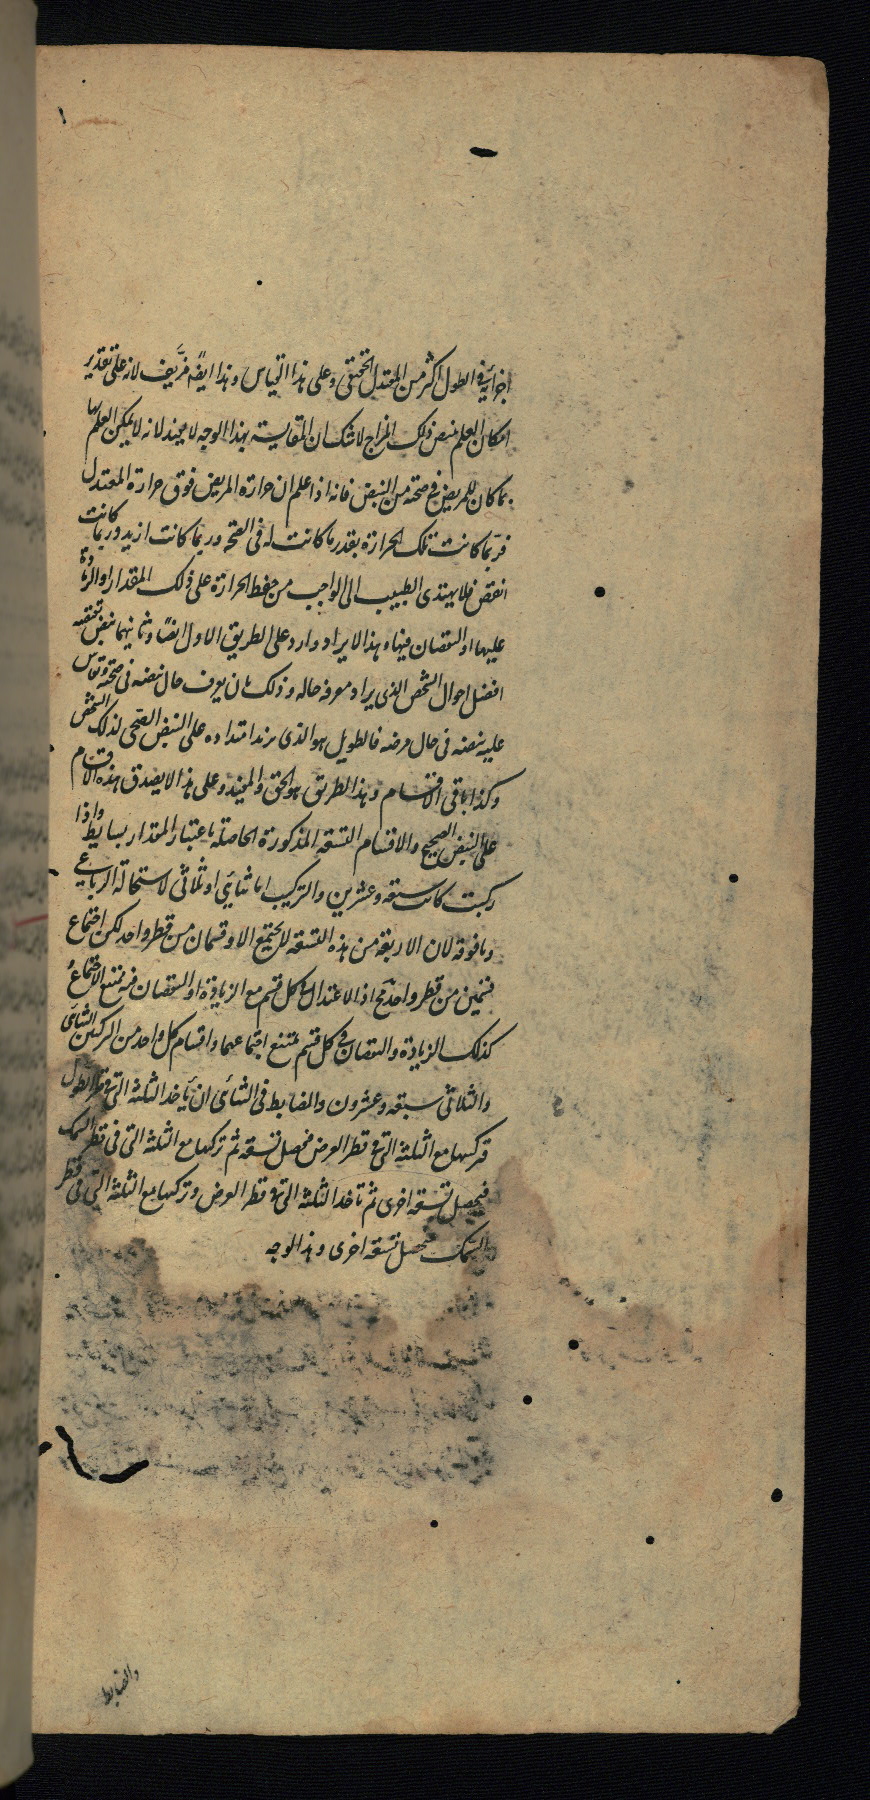 اجزائه فى الطول اكثر من المعتدل الحقيقى وعلى هذا القياس وهذا ايضًا مزيف لانه على تقدير
امكان العلم بنبض ذلك المزاج لا شك ان المقايسة بهذا الوجه لا يفيد لانه لا يمكن العلم بها
بما كان للمريض فى صحته من النبض فانه اذا علم ان حرارة المريض فوق حرارة المعتدل
فربما كانت تلك الحرارة بقدر ما كانت له فى الصحة وربما كانت ازيد وربما كانت
انقص فلا يهتدى الطبيب الى الواجب من حفظ الحرارة على ذلك المقدار او الزيادة
عليها او النقصان فيها وهذا الايراد وارد على الطريق الاول ايضًا وثانيهما نبض
افضل احوال الشخص الذى يراد معرفة حاله وذلك بان يعرف حال نبضه فى صحته وتقاس
عليه نبضه فى حال مرضه فالطويل هو الذى يزيد امتداده على النبض الصحى لذلك الشخص
وكذا باقى الاقسام وهذا الطريق هو الحق والمفيد وعلى هذا لا يصدق هذه الاقسام
على النبض الصحيح والاقسام التسعة المذكورة الحاصلة باعتبار المقدار بسايط واذا
ركبت كانت سبعة وعشرين والتركيب اما ثنائى او ثلاثى لاستحالة الرباعى
وما فوقه لان الاربعة من هذه التسعة لا يجتمع الا وقسمان من قطر واحد لكن اجتماع
قسمين من قطر واحد مح اذ الاعتدال فى كل قسم مع الزيادة او النقصان فيه يمتنع الاجتماع
كذلك الزيادة والنقصان فى كل قسم يمتنع اجتماعهما واقسام كل واحد من التركيبين الثنائى
والثلاثى سبعة وعشرون والضابط فى الثنائى ان يأخذ الثلثة التى فى قطر الطول
فتركبها مع الثلثة التى فى قطر العرض فيحصل تسعة ثم تركبها مع الثلثة التى فى قطر السمك
فيحصل تسعة اخرى ثم تأخذ الثلثة التى فى قطر العرض وتركبها مع الثلثة التى فى قطر
السمك فيحصل تسعة اخرى وهذا الوجه
والضابط